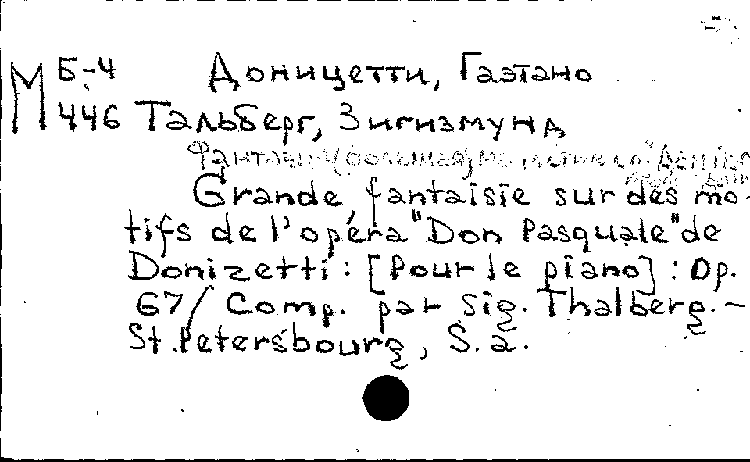 М Б-4 Доницетти, Гаэтано
446 Тальберг, Зигизмунд
Фантазия (большая) на
Grande fantaisie sur des mo-
tifs de l'opéra "Don Pasquale" de
Donizetti: [Pour le piano]: Op.
67/ Comp. par Sig. Thalberg. –
St. Petersbourg, S.a.